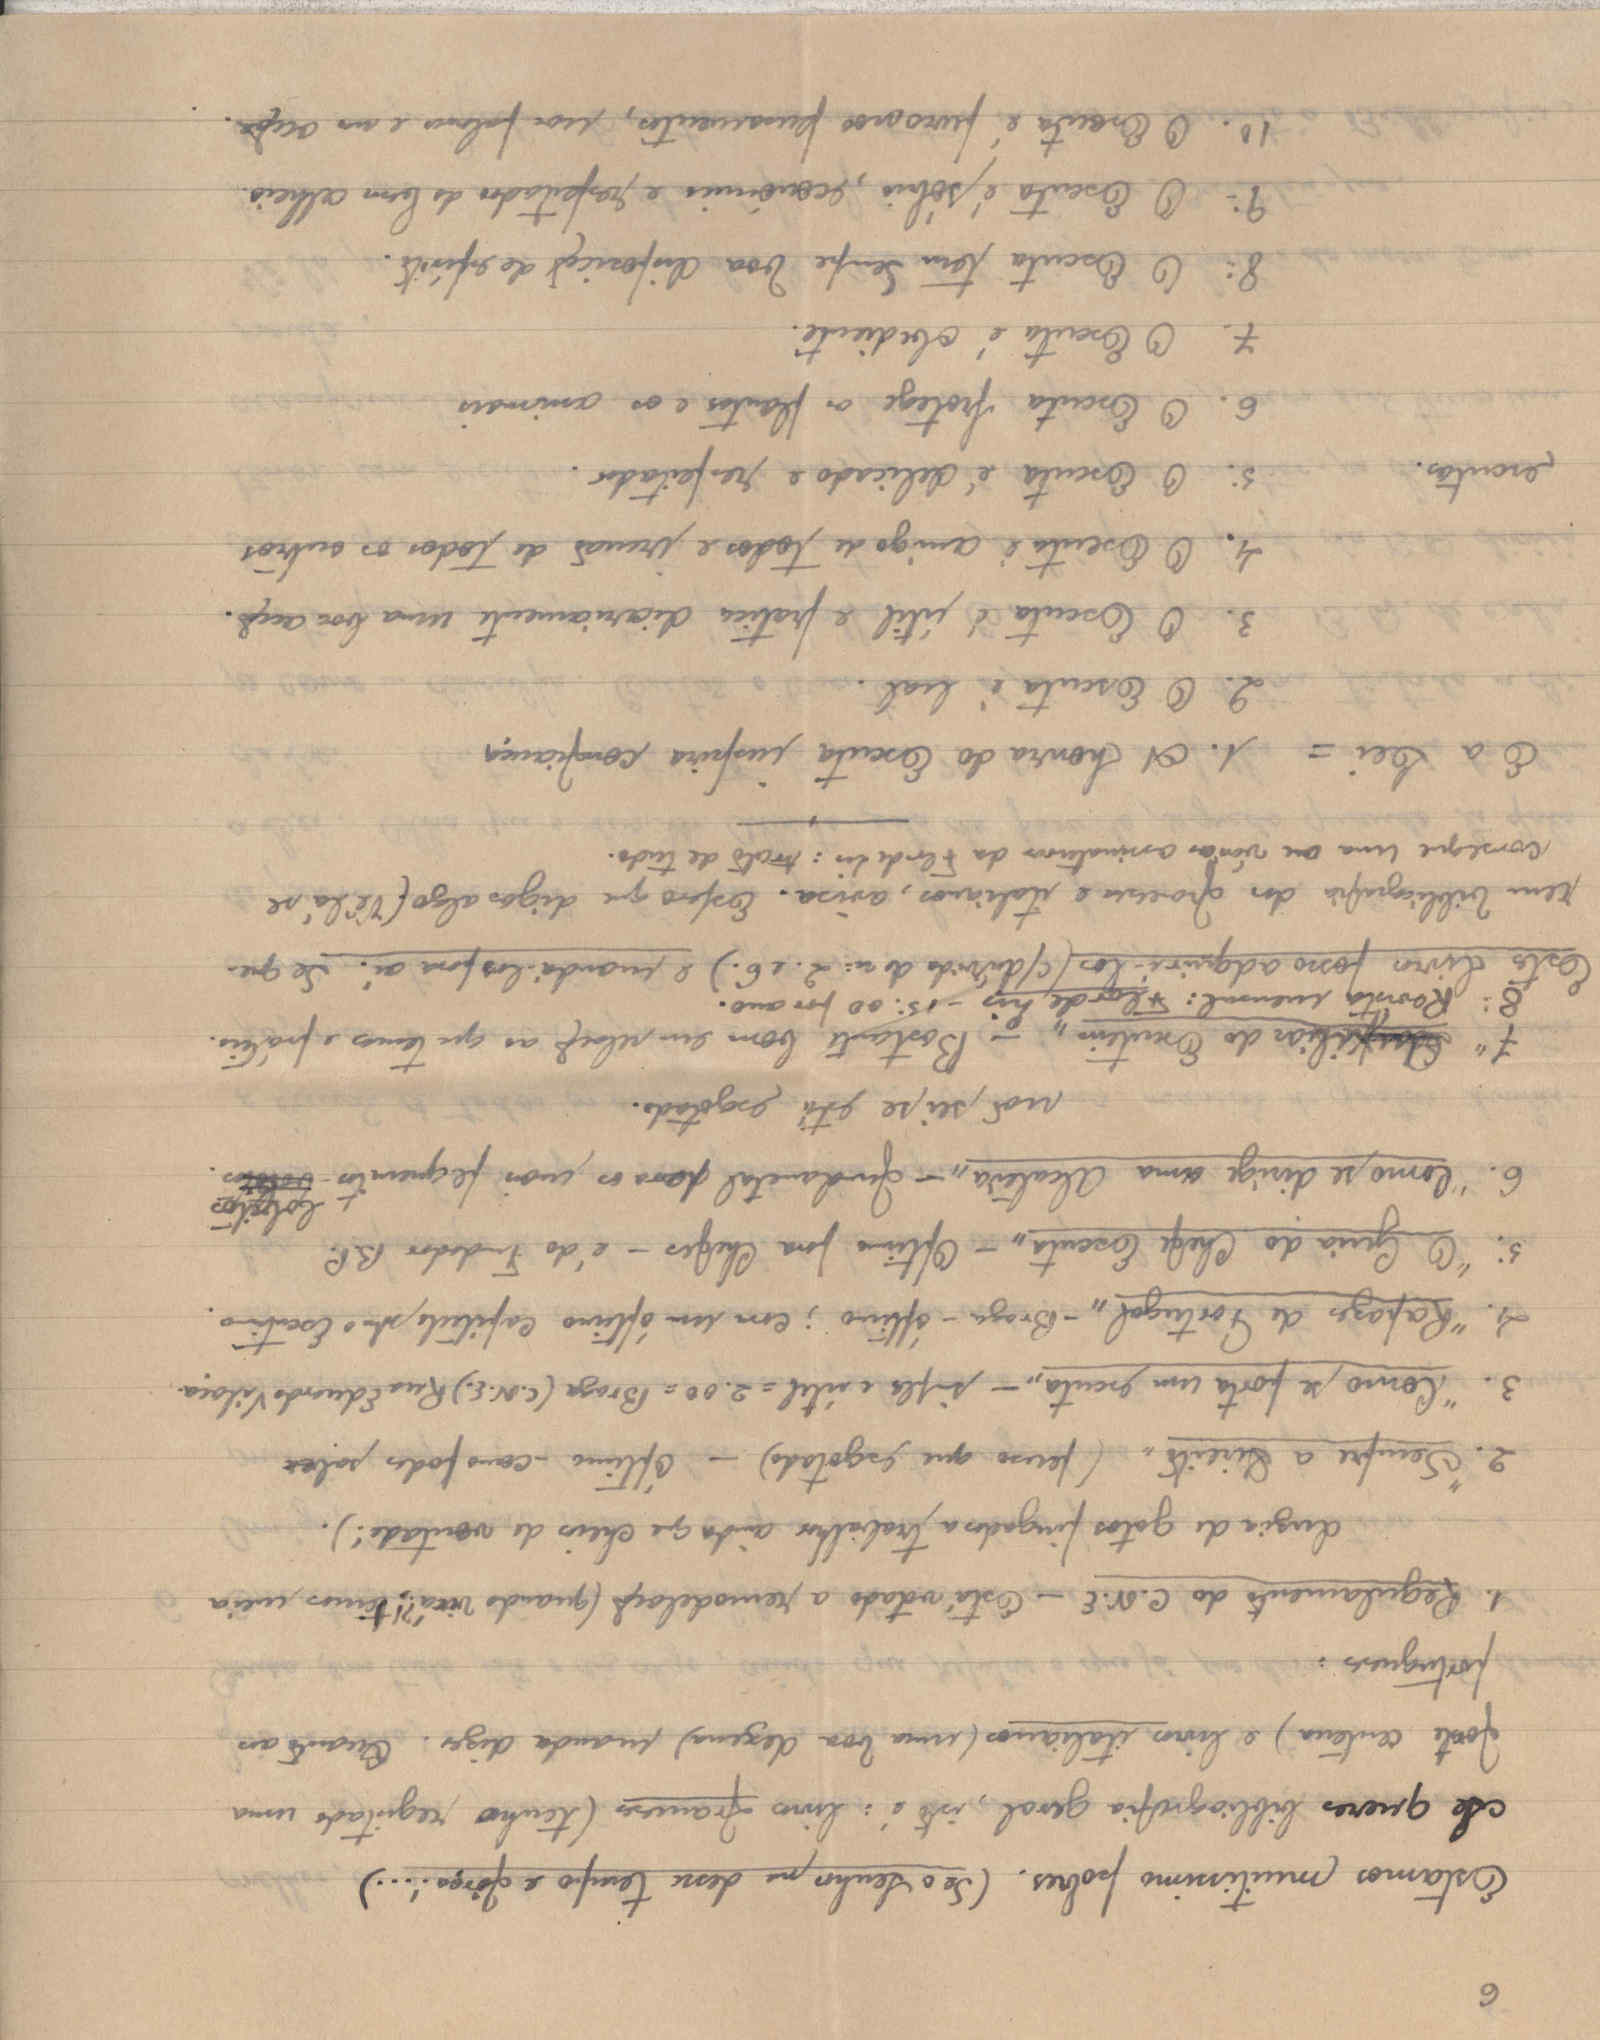 6
Estamos muitissimo pobres. (Se o Senhor me desse tempo e força!...)
Se queres bibliografia geral, isto é: livros franceses (tenho registado uma
forte centena) e livros italianos (uma boa dezena) manda dizer. Quanto aos
portugueses:
1. Regulamento do C.N.E. – Está votado a remodelação (quando virá?! temos meia
duzia de gatos pingados a trabalhar ainda que cheios de vontade!).
2. "Sempre a Direito" (penso que esgotado) – Óptimo – como podes saber
3. "Como se porta um escuta" – simples e útil = 2.00 = Braga (C.N.E.) Rua Eduardo Vilaça
4. "Rapazes de Portugal" – Braga – óptimo; com um óptimo capitulo sbre o Escutismo.
5: "O Guia do Chefe Escuta" – Óptimo para Chefes – é do Fundador B.P.
6. "Como se dirige uma Alcateia" – fundamental para os mais pequenitos – lobitos.
não sei se está esgotado.
7" Auxiliar do Escutismo" – Bastante bom em relação ao que temos e prático.
8: Revista mensal: Flor de Lis – 15.00 por ano.
Estes livros posso adquiri-los (c/ dúvida do n: 2. e 6.) e mandá-los para aí. Se que-
rem bibliografia dos franceses e italianos, avisa. Espero que digas algo (Vê lá se
consegues uma ou várias assinaturas da Flor de Lis: trato de tudo.
E a Lei = 1. A Honra do Escuta inspira confiança
2. O Escuta é leal.
3. O Escuta é útil e pratica diariamente uma boa acção.
4. O Escuta é amigo de todos e irmão de todos os outros
escutas.
5: O Escuta é delicado e respeitador.
6. O Escuta protege as plantas e os animais
7. O Escuta é obediente.
8: O Escuta tem sempre boa disposição de espírito.
9: O Escuta é sóbrio, económico e respeitador do bem alheio.
10. O Escuta é puro nos pensamentos, nas palavras e nas acções.